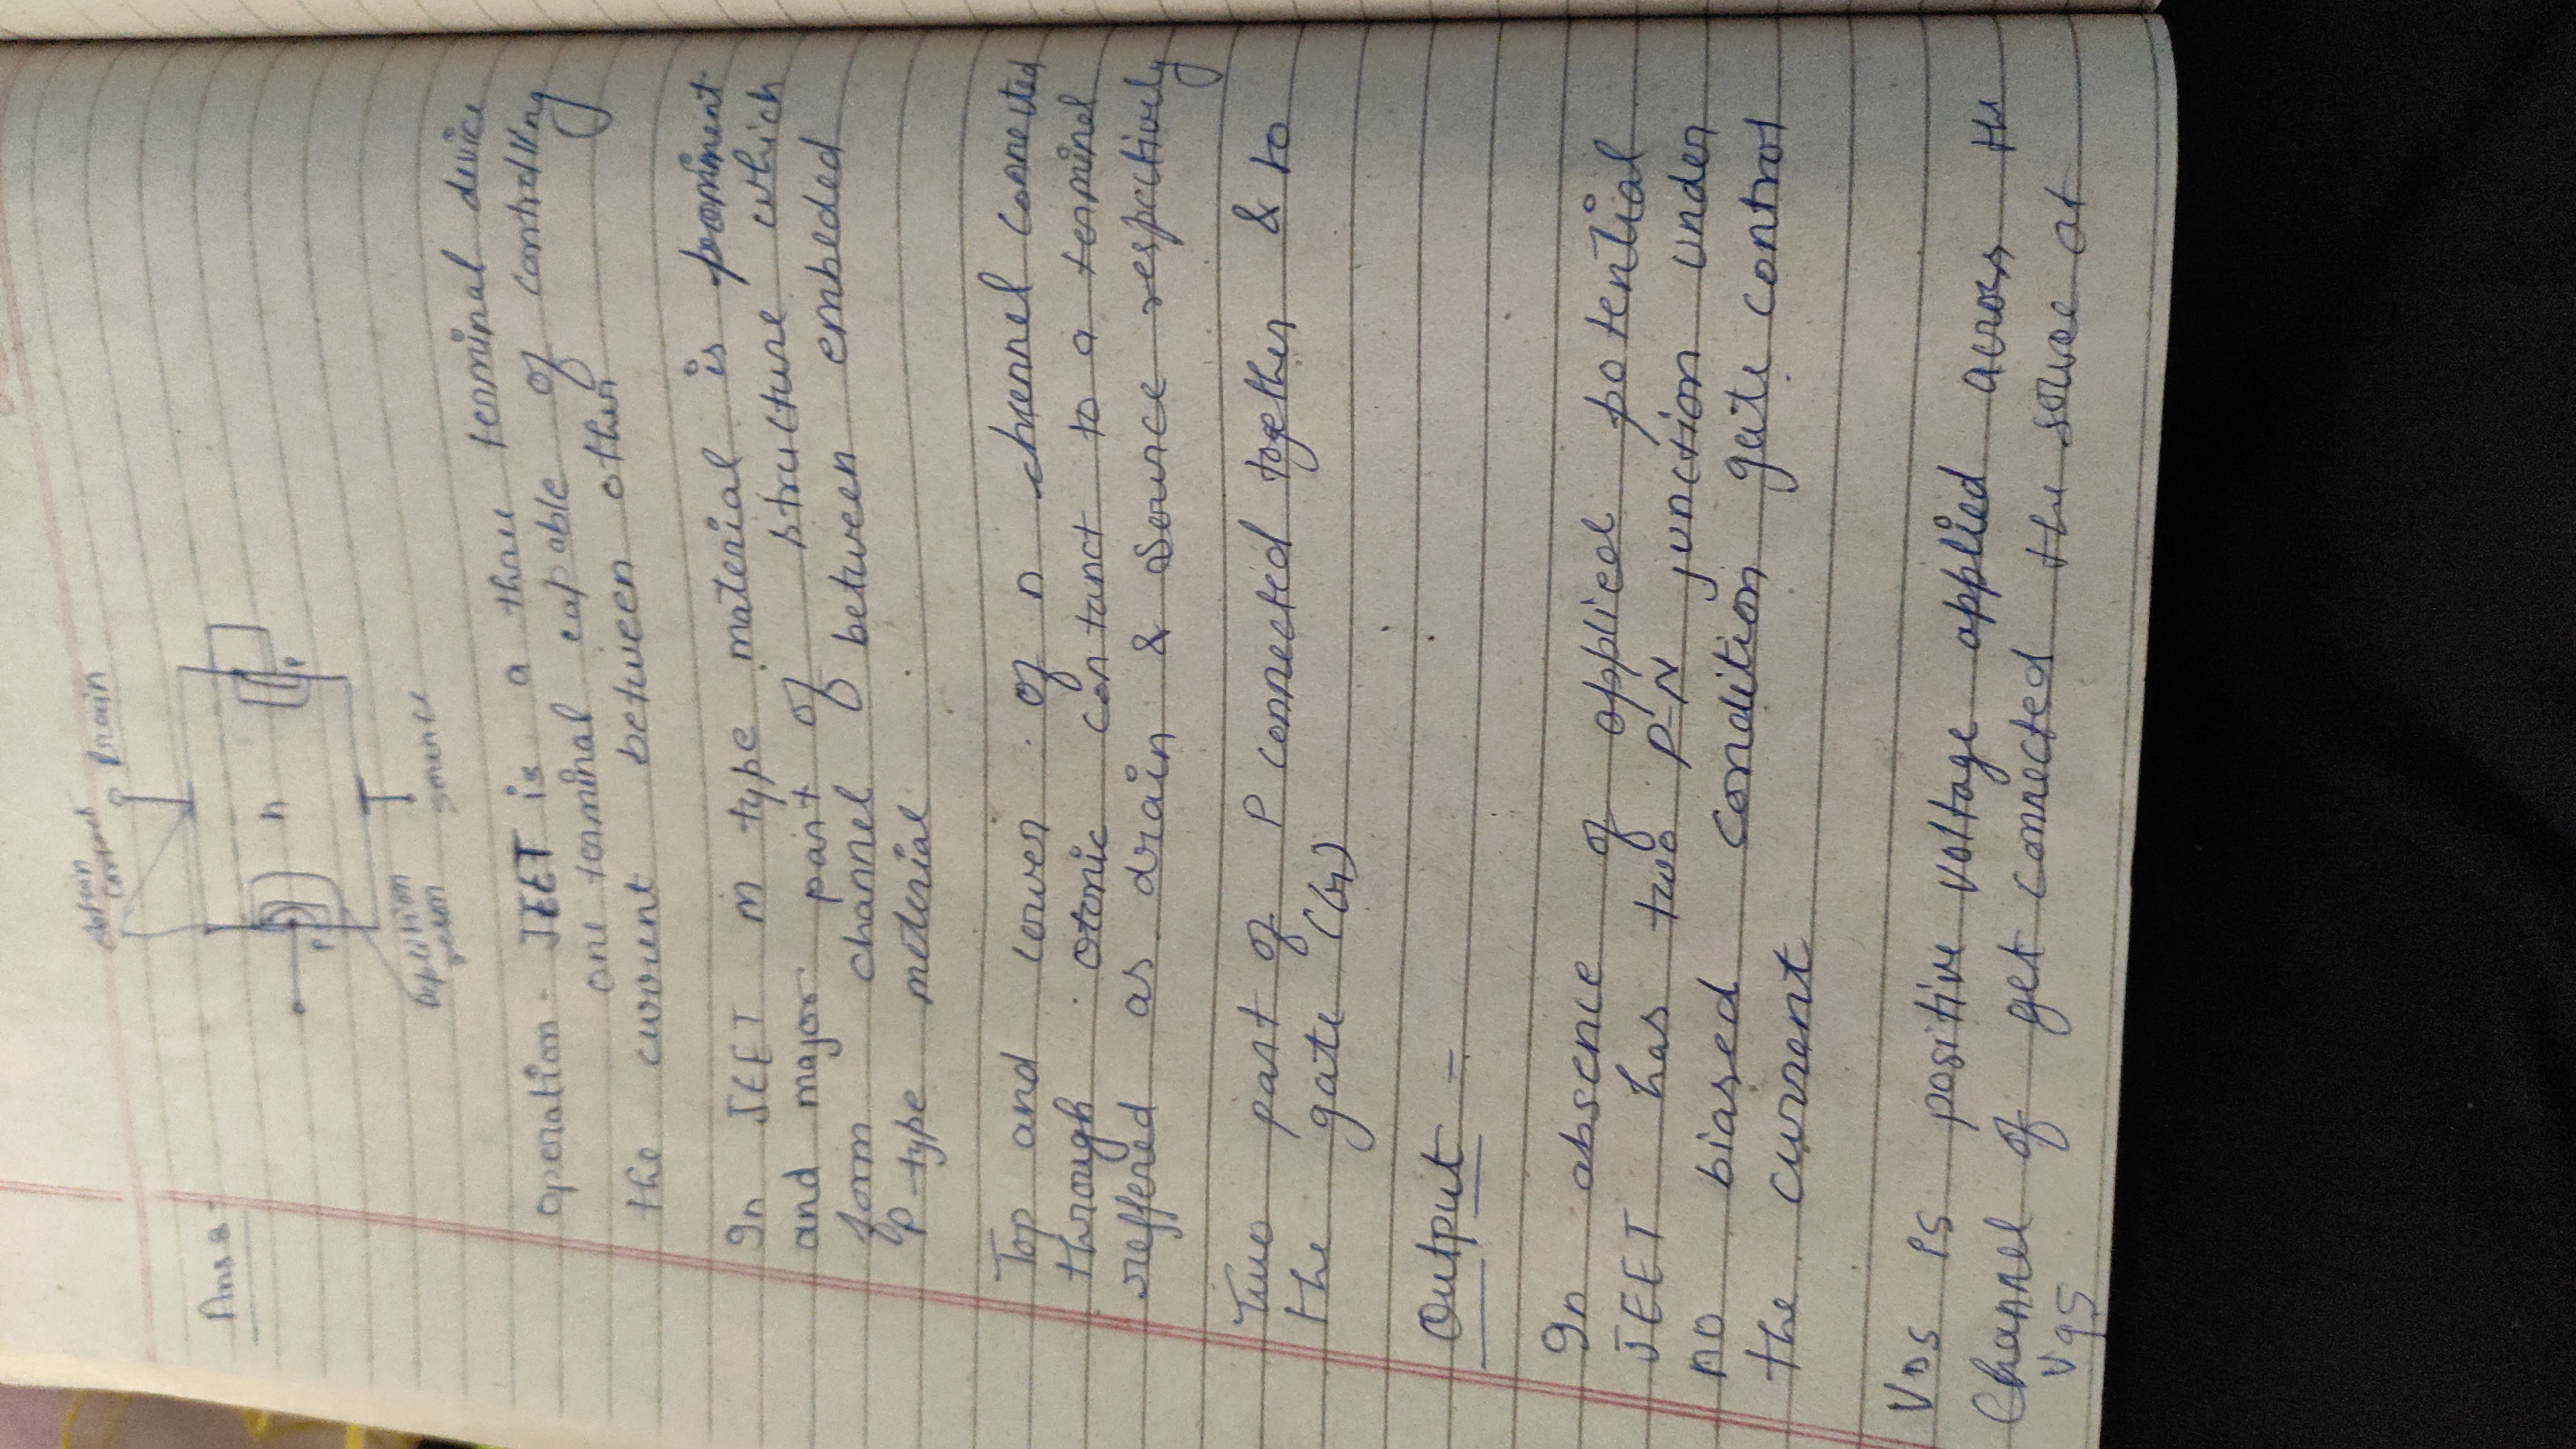 contact
Drain
Ans 8-
n
P
P
Deplition
source
operation - JEET is a three terminal device
one terminal capable of controlling
the current between other
In JEET n type material is prominent
and major part of structure which
form channel between embeded
P-type meterial
Top and lower of n channel connected
through otonic contanct to a terminal
reffered as drain & Source respectively
Two part of P connected together & to
the gate (G)
Output -
In absence of applied potential
JEET has two P-N junction under
no biased condition gate control
the current
VDS is positive voltage applied across the
Channel of get connected the source at
Vgs